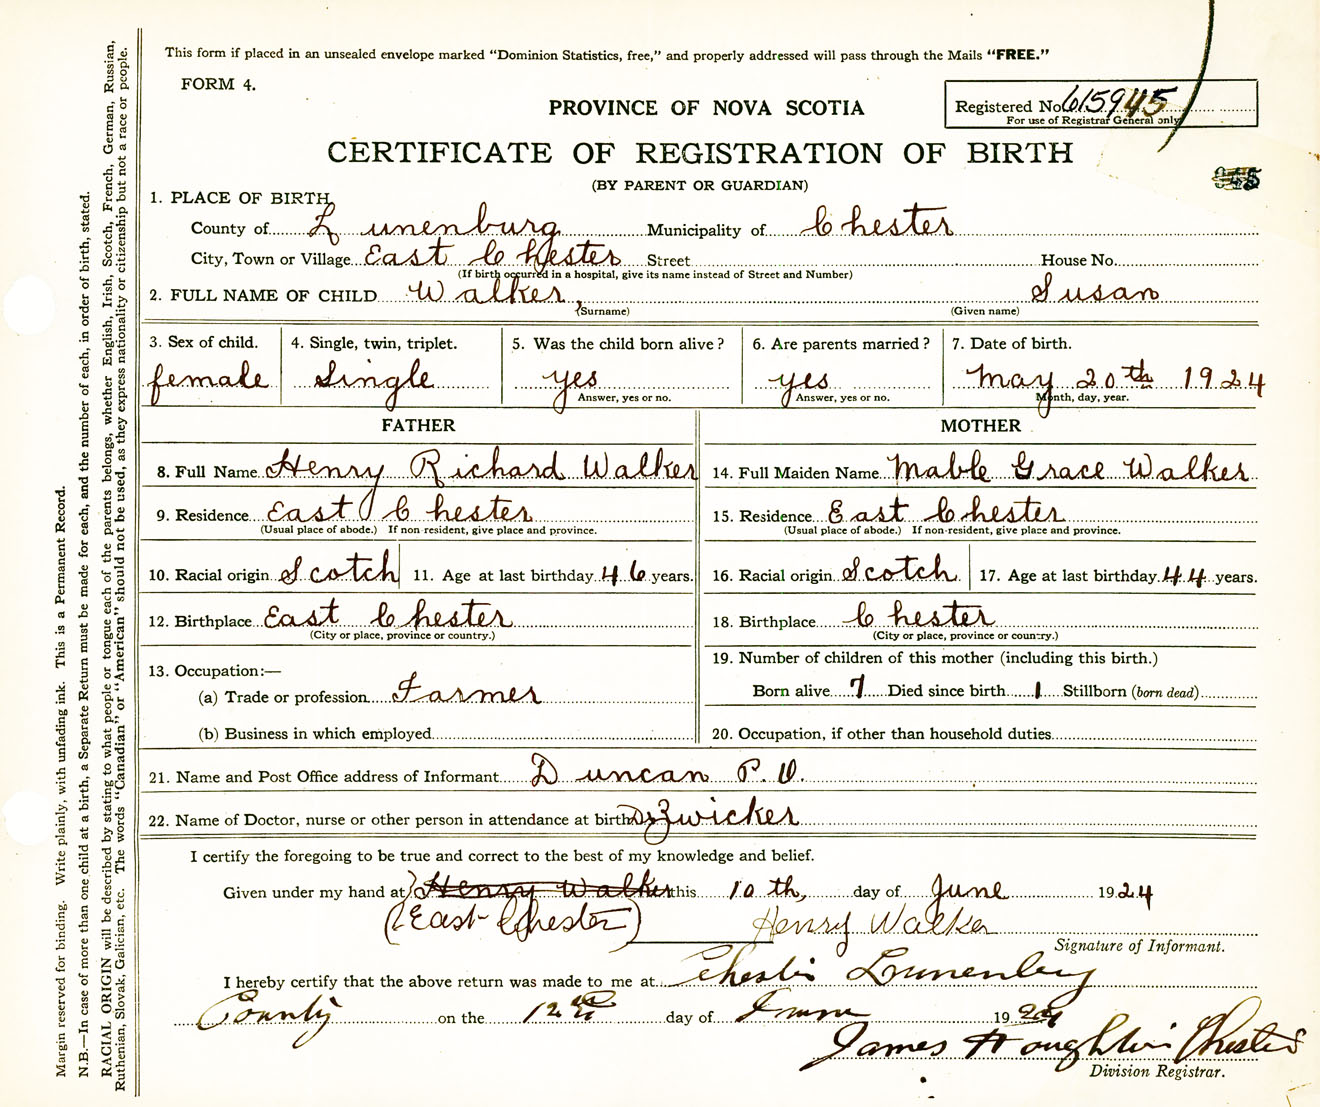 This form if placed in an unsealed envelope marked “Dominion Statistics, free,” and properly addressed will pass through the Mails “FREE.”
FORM 4.
PROVINCE OF NOVA SCOTIA
Registered No. 615945
For use of Registrar General only
CERTIFICATE OF REGISTRATION OF BIRTH
(BY PARENT OR GUARDIAN)
945
1. PLACE OF BIRTH
County of Lunenburg Municipality of Chester
City, Town or Village East Chester Street House No.
(If birth occurred in a hospital, give its name instead of Street and Number)
2. FULL NAME OF CHILD Walker, Susan
(Surname) (Given name)
3. Sex of child. 4. Single, twin, triplet. 5. Was the child born alive? 6. Are parents married? 7. Date of birth.
female Single yes yes May 20th 1924
Answer, yes or no. Answer, yes or no. Month, day, year.
FATHER MOTHER
8. Full Name Henry Richard Walker 14. Full Maiden Name Mable Grace Walker
9. Residence East Chester 15. Residence East Chester
(Usual place of abode.) If non-resident, give place and province. (Usual place of abode.) If non-resident, give place and province.
10. Racial origin Scotch 11. Age at last birthday 46 years. 16. Racial origin Scotch 17. Age at last birthday 44 years.
12. Birthplace East Chester 18. Birthplace Chester
(City or place, province or country.) (City or place, province or country.)
13. Occupation:— 19. Number of children of this mother (including this birth.)
(a) Trade or profession Farmer Born alive 7 Died since birth 1 Stillborn (born dead)
(b) Business in which employed 20. Occupation, if other than household duties
21. Name and Post Office address of Informant Duncan P.O.
22. Name of Doctor, nurse or other person in attendance at birth Dr Zwicker
I certify the foregoing to be true and correct to the best of my knowledge and belief.
Given under my hand at Henry Walker this 10 th, day of June 1924
(East Chester) Henry Walker
Signature of Informant.
I hereby certify that the above return was made to me at Chester Lunenburg
County on the 12th day of June 1924
James Houghton Chester
Division Registrar.
Margin reserved for binding. Write plainly, with unfading ink. This is a Permanent Record.
N.B.—In case of more than one child at a birth, a Separate Return must be made for each, and the number of each, in order of birth, stated.
RACIAL ORIGIN will be described by stating to what people or tongue each of the parents belongs, whether English, Irish, Scotch, French, German, Russian,
Ruthenian, Slovak, Galician, etc. The words “Canadian” or “American” should not be used, as they express nationality or citizenship but not a race or people.